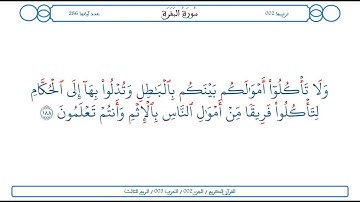 ترتيبها 002 سُورَةُ البَقَرَةِ عدد آياتها 286
وَلَا تَأْكُلُوٓا۟ أَمْوَٰلَكُم بَيْنَكُم بِٱلْبَٰطِلِ وَتُدْلُوا۟ بِهَآ إِلَى ٱلْحُكَّامِ
لِتَأْكُلُوا۟ فَرِيقًا مِّنْ أَمْوَٰلِ ٱلنَّاسِ بِٱلْإِثْمِ وَأَنتُمْ تَعْلَمُونَ ١٨٨
القرآن الكريم / الجزء 002 / الحزب 003 / الربع الثالث